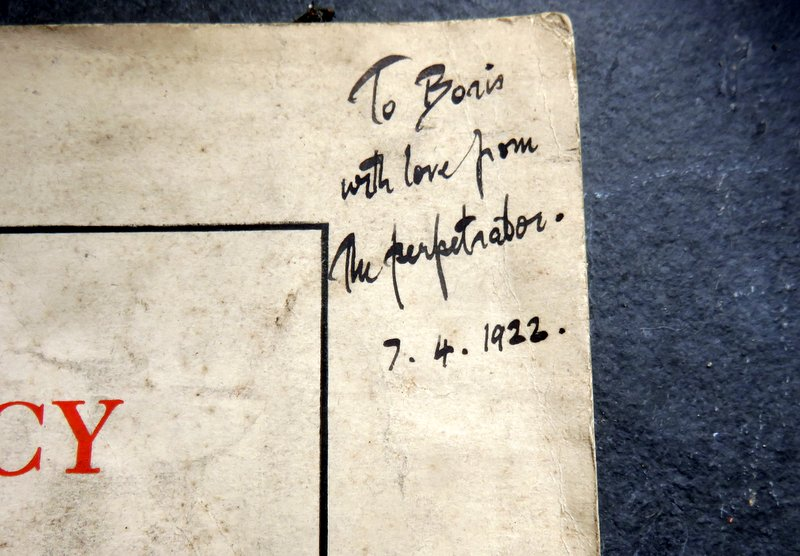 To Boris
with love from
the perpetrator.
7.4.1922.
CY